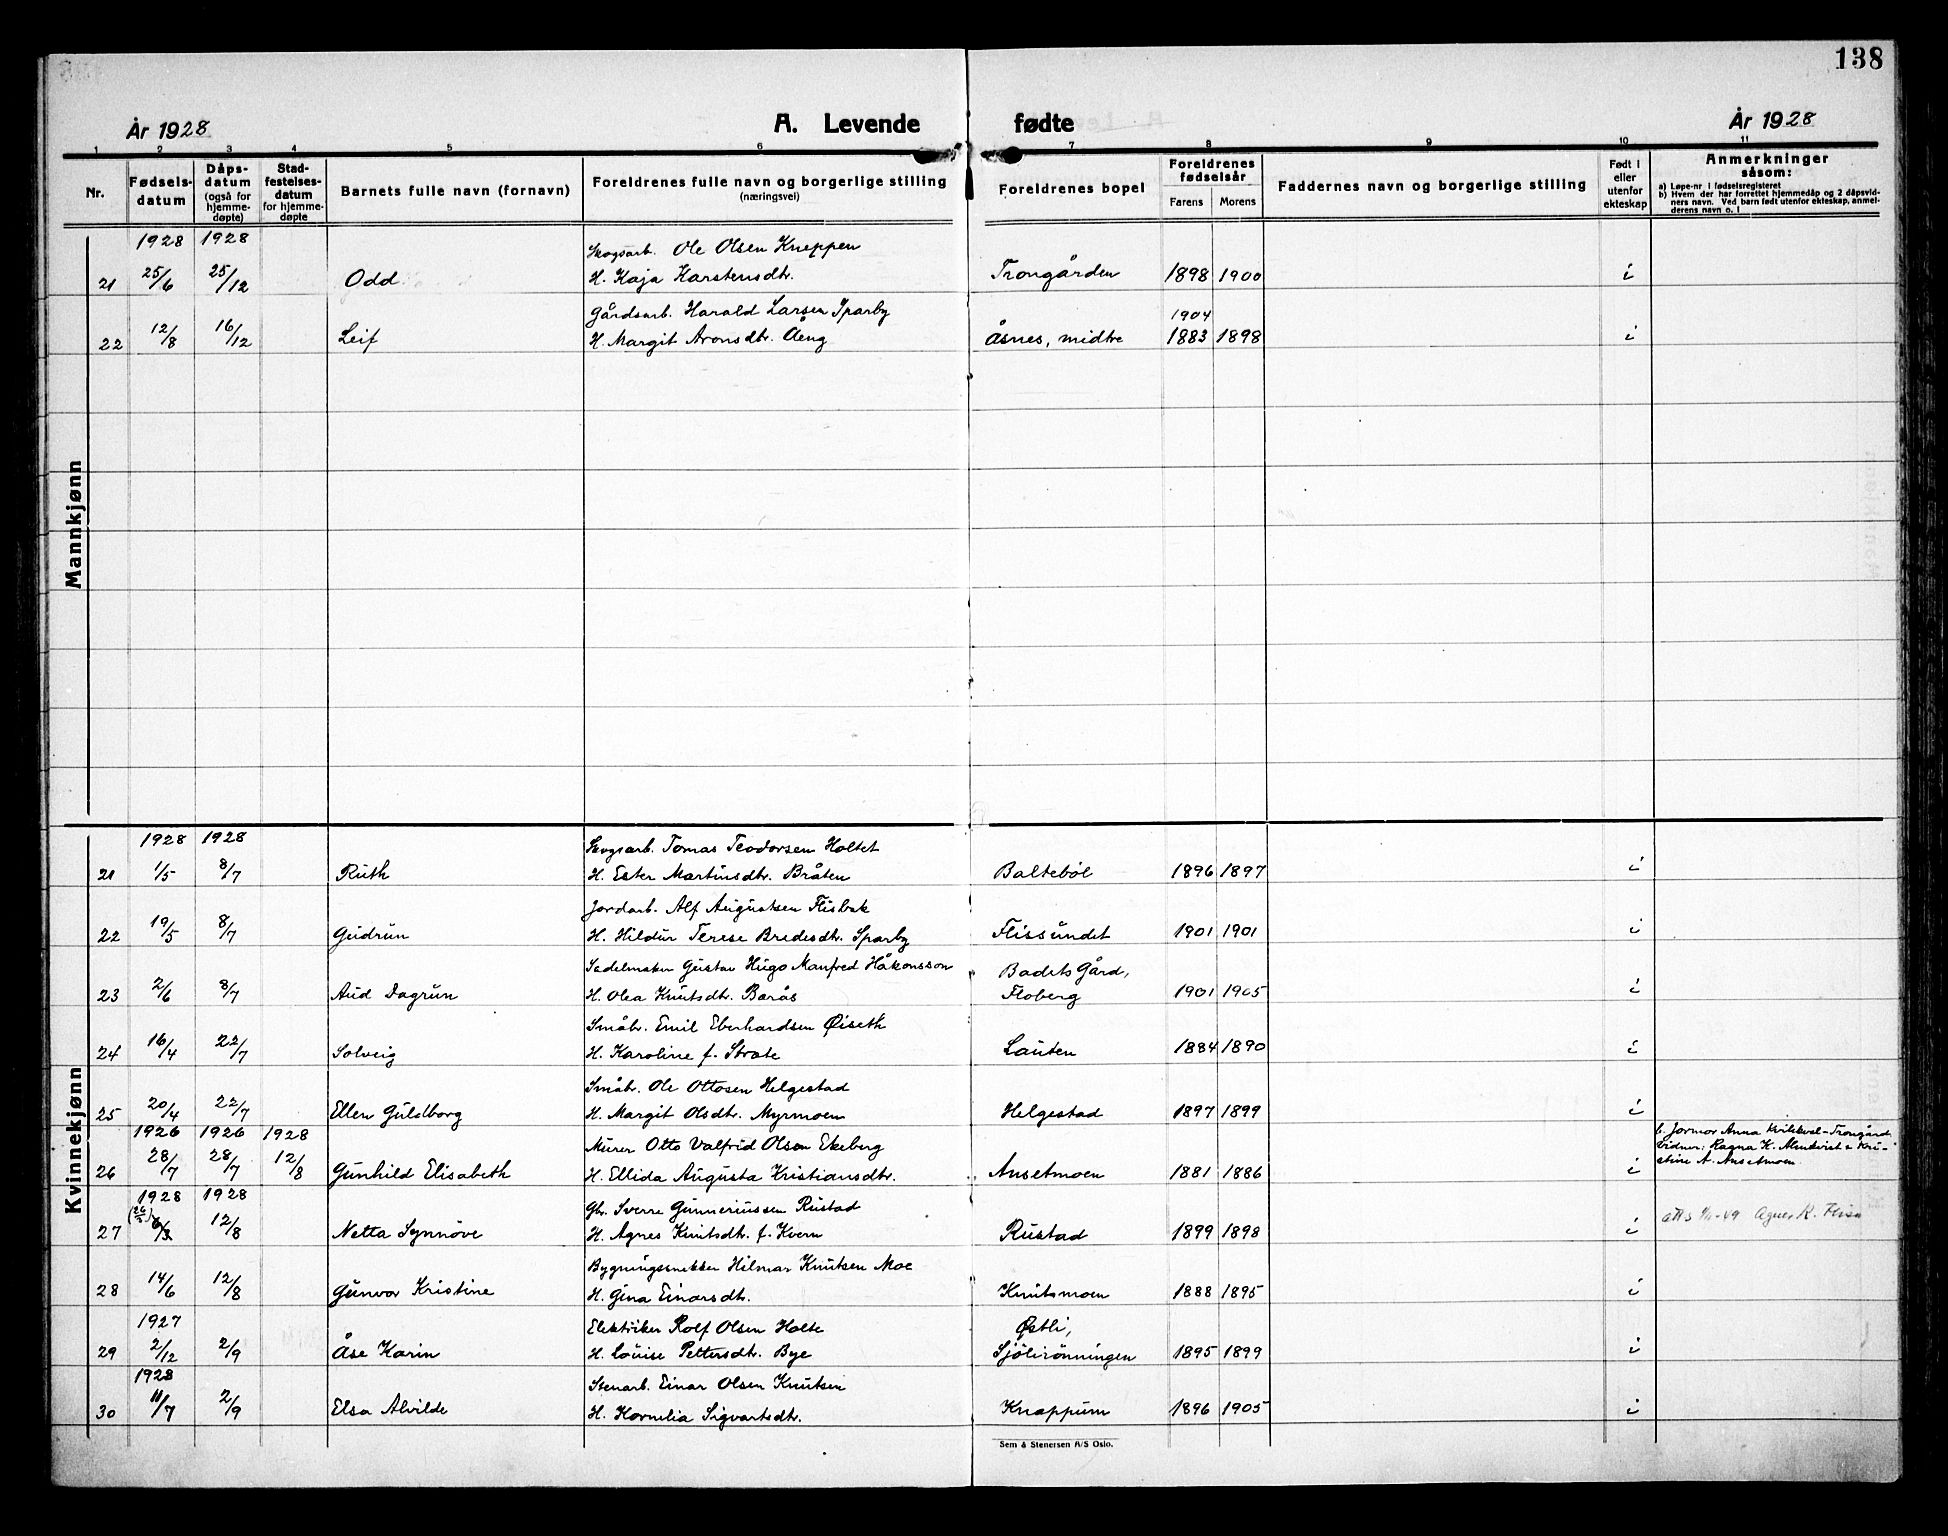 138
År 1928 A. Levende fødte År 1928
1 2 3 4 5 6 7 8 9 10 11
Nr. Fødsels-datum Dåps-datum (også for hjemme-døpte) Stad-festelses-datum for hjemme-døpte Barnets fulle navn (fornavn) Foreldrenes fulle navn og borgerlige stilling (næringsvei) Foreldrenes bopel Foreldrenes fødselsår Farens Morens Faddernes navn og borgerlige stilling Født i eller utenfor ekteskap Anmerkninger såsom:
a) Løpe-nr i fødselsregisteret
b) Hvem der har forrettet hjemmedåp og 2 dåpsvid-
ners navn. Ved barn født utenfor ekteskap, anmel-
derens navn o. l
Mannkjønn
1928 1928 Skogsarb. Ole Olsen Kneppen
21 25/6 25/12 Odd H. Kaja Karstensdtr. Trongården 1898 1900 i
Gårdsarb. Harald Larsen Sparby 1904
22 12/8 16/12 Leif H. Margit Aronsdtr. Åeng Åsnes, midtre 1883 1898 i
Kvinnekjønn
1928 1928 Skogsarb. Tomas Teodorsen Holtet
21 1/5 8/7 Ruth H. Ester Martinsdtr. Bråten Baltebøl 1896 1897 i
Jordarb. Alf Augustsen Flisbak
22 19/5 8/7 Gudrun H. Hildur Terese Bredesdtr. Sparby Flissundet 1901 1901 i
Sadelmaker Gustav Hugo Manfred Håkonsson Badets Gård,
23 2/6 8/7 Aud Dagrun H. Olea Knutsdtr. Barås Floberg 1901 1905 i
Småbr. Emil Eberhardsen Øiseth
24 16/4 22/7 Solveig H. Karoline f. Strate Lauten 1884 1890 i
Småbr. Ole Ottosen Helgestad
25 20/4 22/7 Ellen Guldborg H. Margit Olsdtr. Myrmoen Helgestad 1897 1899 i
1926 1926 1928 Murer Otto Valfrid Olsen Ekeberg b. Jormor Anna Kvilekval-Trongård
Vidner: Ragna K. & Kri-
26 28/7 28/7 12/8 Gunhild Elisabeth H. Ellida Augusta Kristiansdtr. Ansetmoen 1881 1886 i stine A. Ansetmoen
1928 1928 Gbr. Sverre Gunneriussen Rustad
27 (26/5) 6/3 12/8 Netta Synnöve H. Agnes Knutsdtr. f. Kvern Rustad 1899 1898 i Agnes R. Flisa
Bygningssnekker Hilmar Knutsen Moe
28 14/6 12/8 Gunvor Kristine H. Gina Einarsdtr. Knutsmoen 1888 1895 i
1927 Elektriker Rolf Olsen Holte Østli,
29 2/12 2/9 Åse Karin H. Louise Pettersdtr. Bye Sjölirönningen 1895 1899 i
1928 Stenarb. Einar Olsen Knutsen
30 11/7 2/9 Elsa Alvilde H. Kornelia Sigvartsdtr. Knappum 1896 1905 i
Sem & Stenersen A/S Oslo.